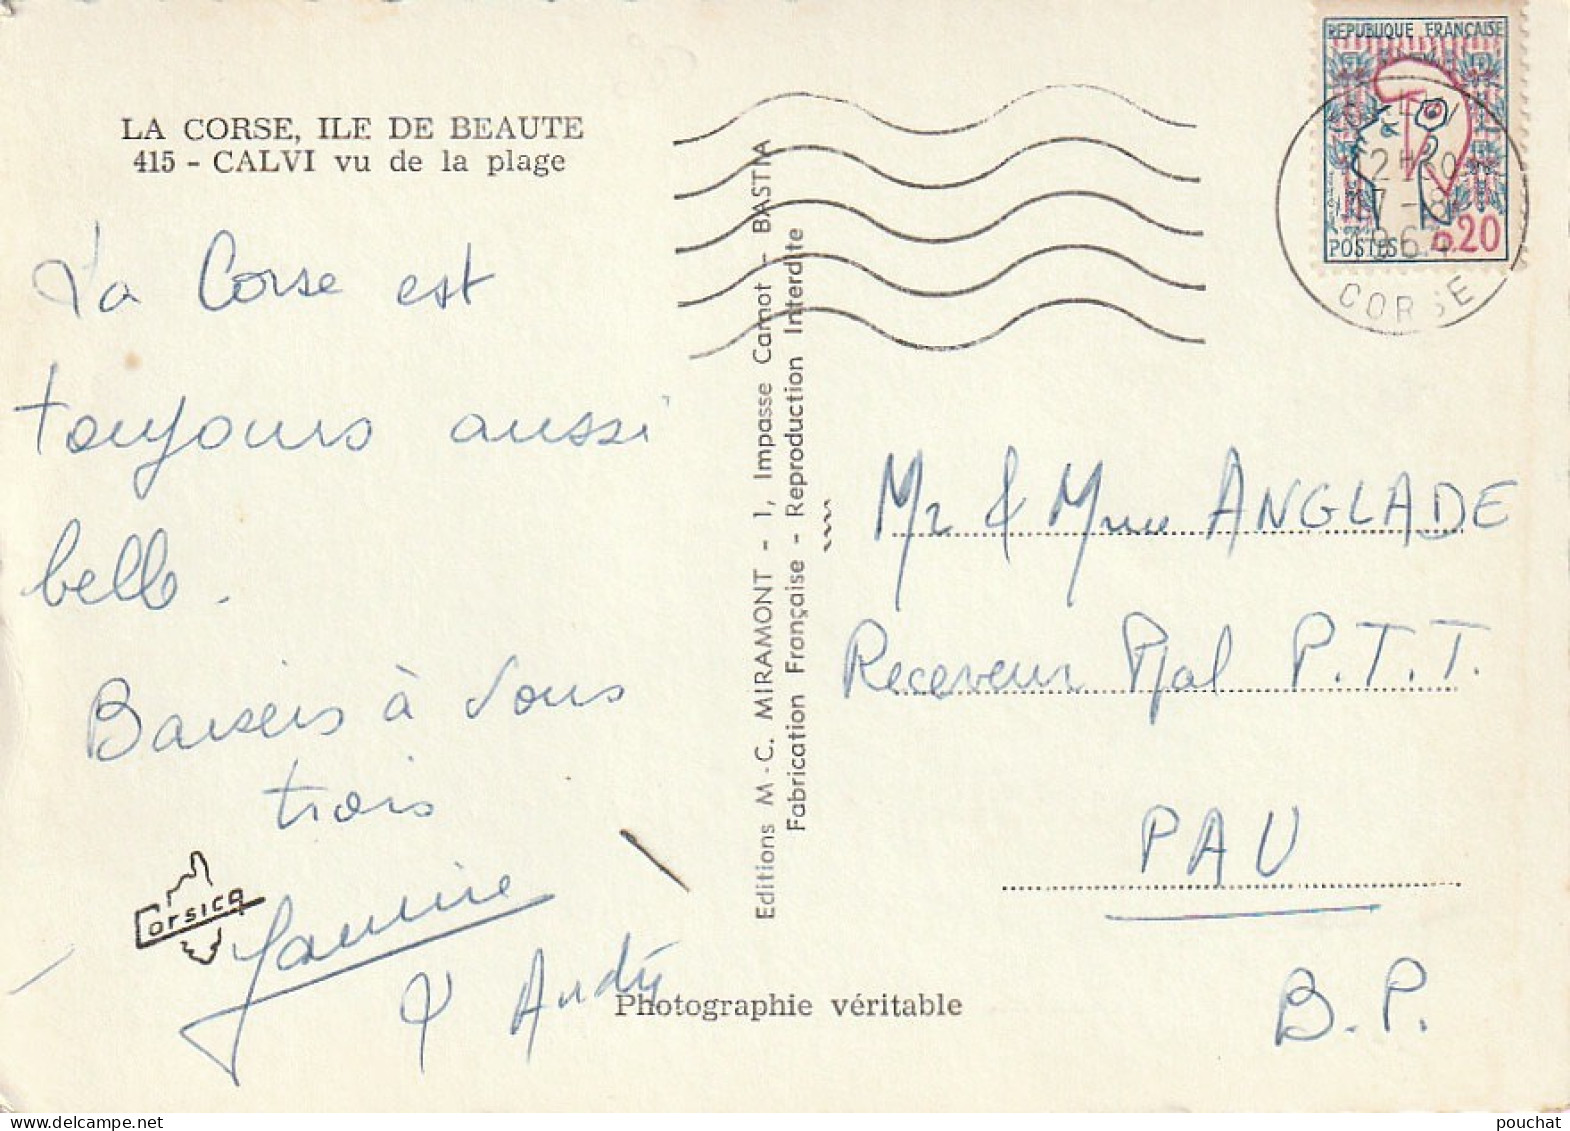 LA CORSE, ILE DE BEAUTE
415 - CALVI vu de la plage
La Corse est
toujours aussi
belle.
Baisers à vous
trois
Corsica
Janine
& André
Editions M.-C. MIRAMONT - 1, Impasse Carnot - BASTIA
Fabrication Française - Reproduction Interdite
Photographie véritable
REPUBLIQUE FRANÇAISE
POSTES 0,20
12H30
17-8
CORSE
Mr & Mme ANGLADE
Receveur Pal P.T.T.
PAU
B.P.
pouchat